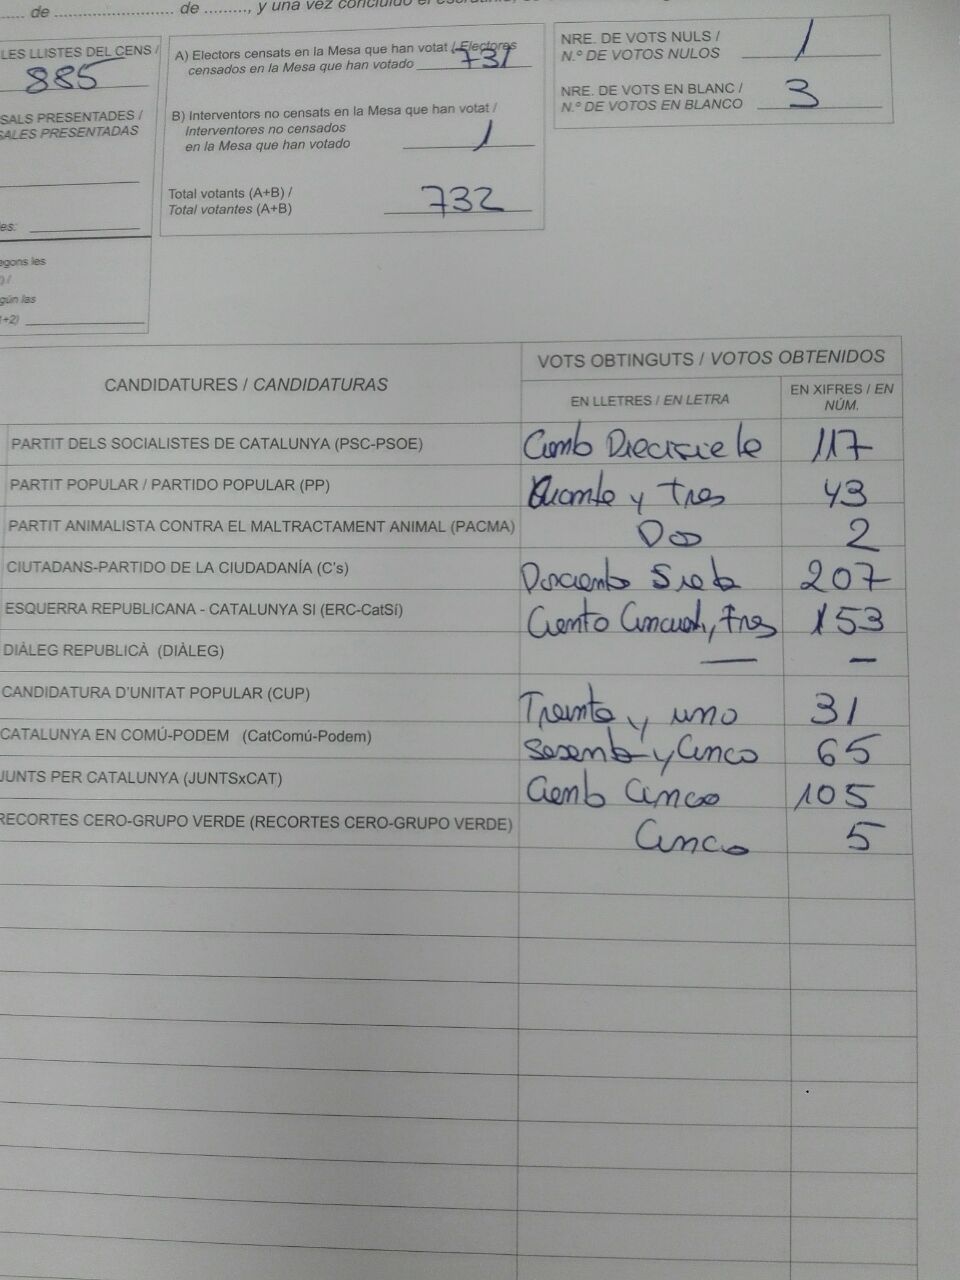 de ........................... de ........., y una vez concluido el
LES LLISTES DEL CENS /
885
SALS PRESENTADES /
SALES PRESENTADAS
es:
egons les
) /
gún las
1+2)
A) Electors censats en la Mesa que han votat / Electores
censados en la Mesa que han votado 731
B) Interventors no censats en la Mesa que han votat /
Interventores no censados
en la Mesa que han votado 1
Total votants (A+B) /
Total votantes (A+B) 732
NRE. DE VOTS NULS /
N.º DE VOTOS NULOS 1
NRE. DE VOTS EN BLANC /
N.º DE VOTOS EN BLANCO 3
CANDIDATURES / CANDIDATURAS
VOTS OBTINGUTS / VOTOS OBTENIDOS
EN LLETRES / EN LETRA
EN XIFRES / EN
NÚM.
PARTIT DELS SOCIALISTES DE CATALUNYA (PSC-PSOE) Ciento Diecisiete 117
PARTIT POPULAR / PARTIDO POPULAR (PP) Cuarenta y tres 43
PARTIT ANIMALISTA CONTRA EL MALTRACTAMENT ANIMAL (PACMA) Dos 2
CIUTADANS-PARTIDO DE LA CIUDADANÍA (C's) Doscientos Siete 207
ESQUERRA REPUBLICANA - CATALUNYA SI (ERC-CatSí) Ciento Cincuenta y tres 153
DIÀLEG REPUBLICÀ (DIÀLEG) — —
CANDIDATURA D'UNITAT POPULAR (CUP) Treinta y uno 31
CATALUNYA EN COMÚ-PODEM (CatComú-Podem) Sesenta y Cinco 65
JUNTS PER CATALUNYA (JUNTSxCAT) Ciento Cinco 105
RECORTES CERO-GRUPO VERDE (RECORTES CERO-GRUPO VERDE) Cinco 5